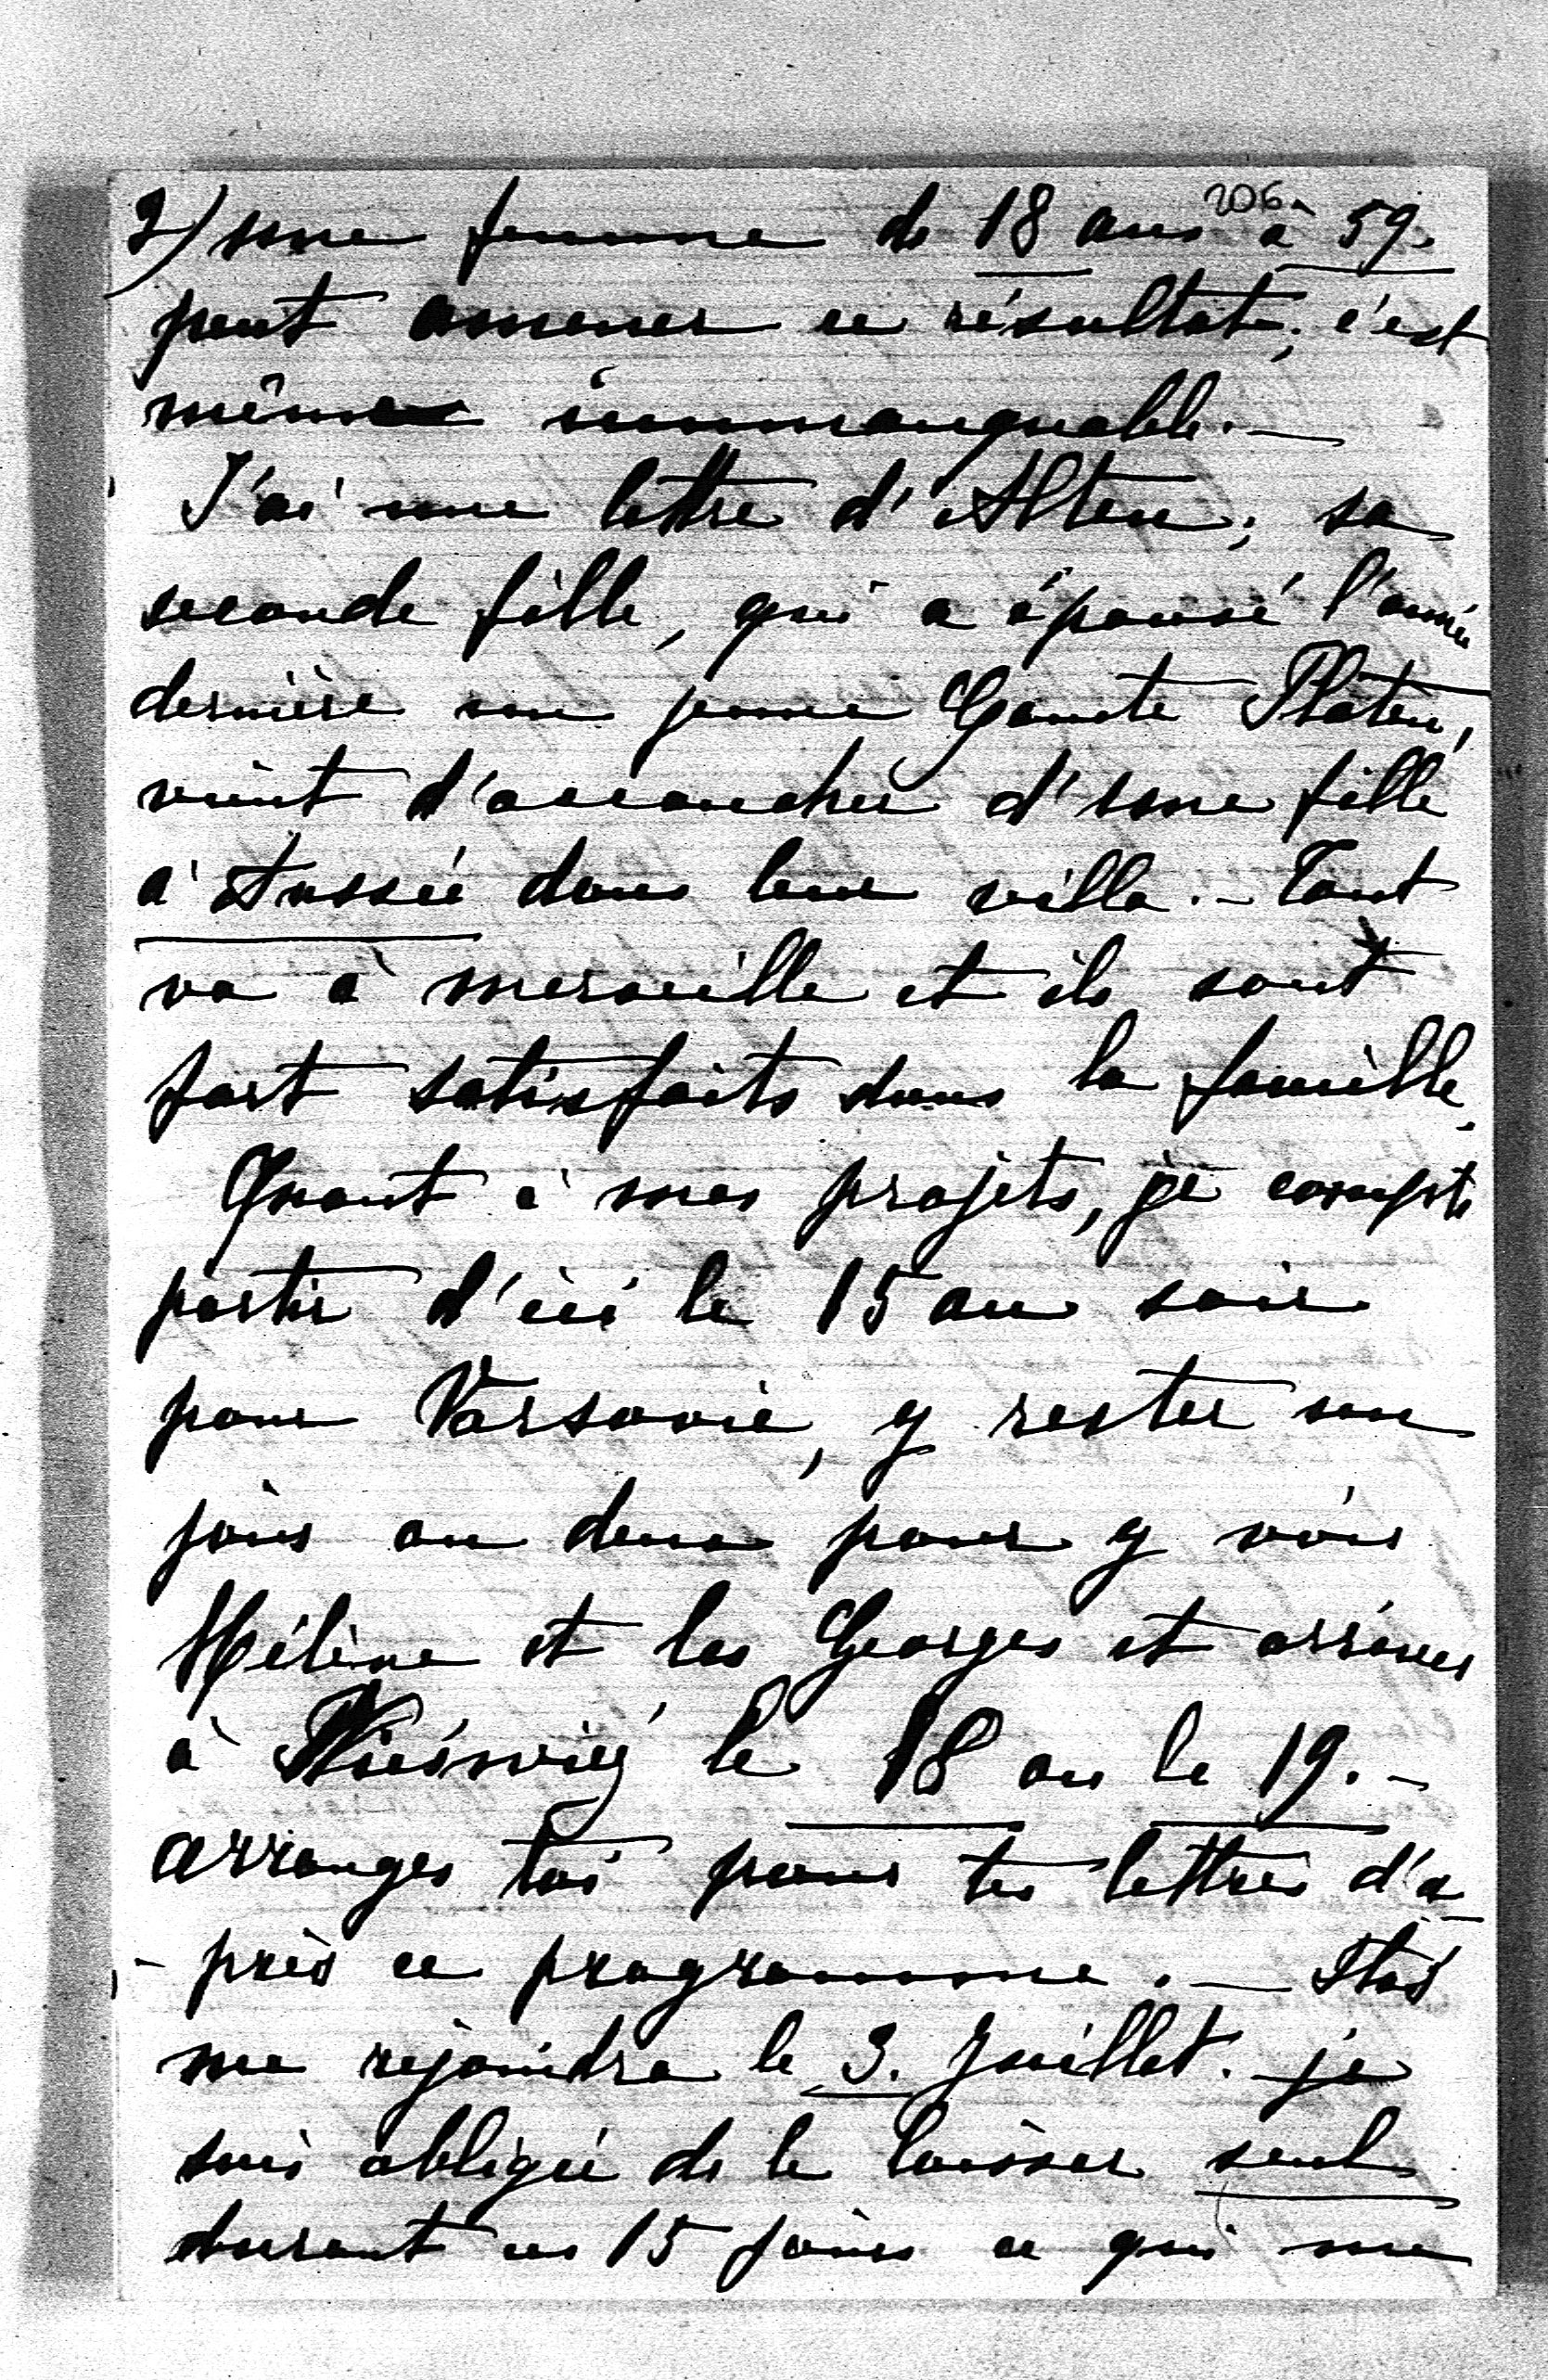 206.
2) une femme de 18 ans à 59.
peut amener ce résultat; c'est
même immanquable. —
J'ai une lettre d'Alten; sa
seconde fille, qui a épousé l'année
dernière un jeune Comte Platen,
vient d'accoucher d'une fille
à Aussée dans leur villa. - Tout
va à merveille et ils sont
fort satisfaits dans la famille.
Quant à mes projets, je compte
partir d'ici le 15 au soir
pour Varsovie, y rester un
jour ou deux pour y voir
Hélène et les Georges et arriver
à Nieśwież le 18 ou le 19. -
arranges toi pour tes lettres d'a
- près ce programme. — Staś
me rejoindra le 3. Juillet. je
suis obligée de le laisser seul
durant ces 15 jours ce qui me